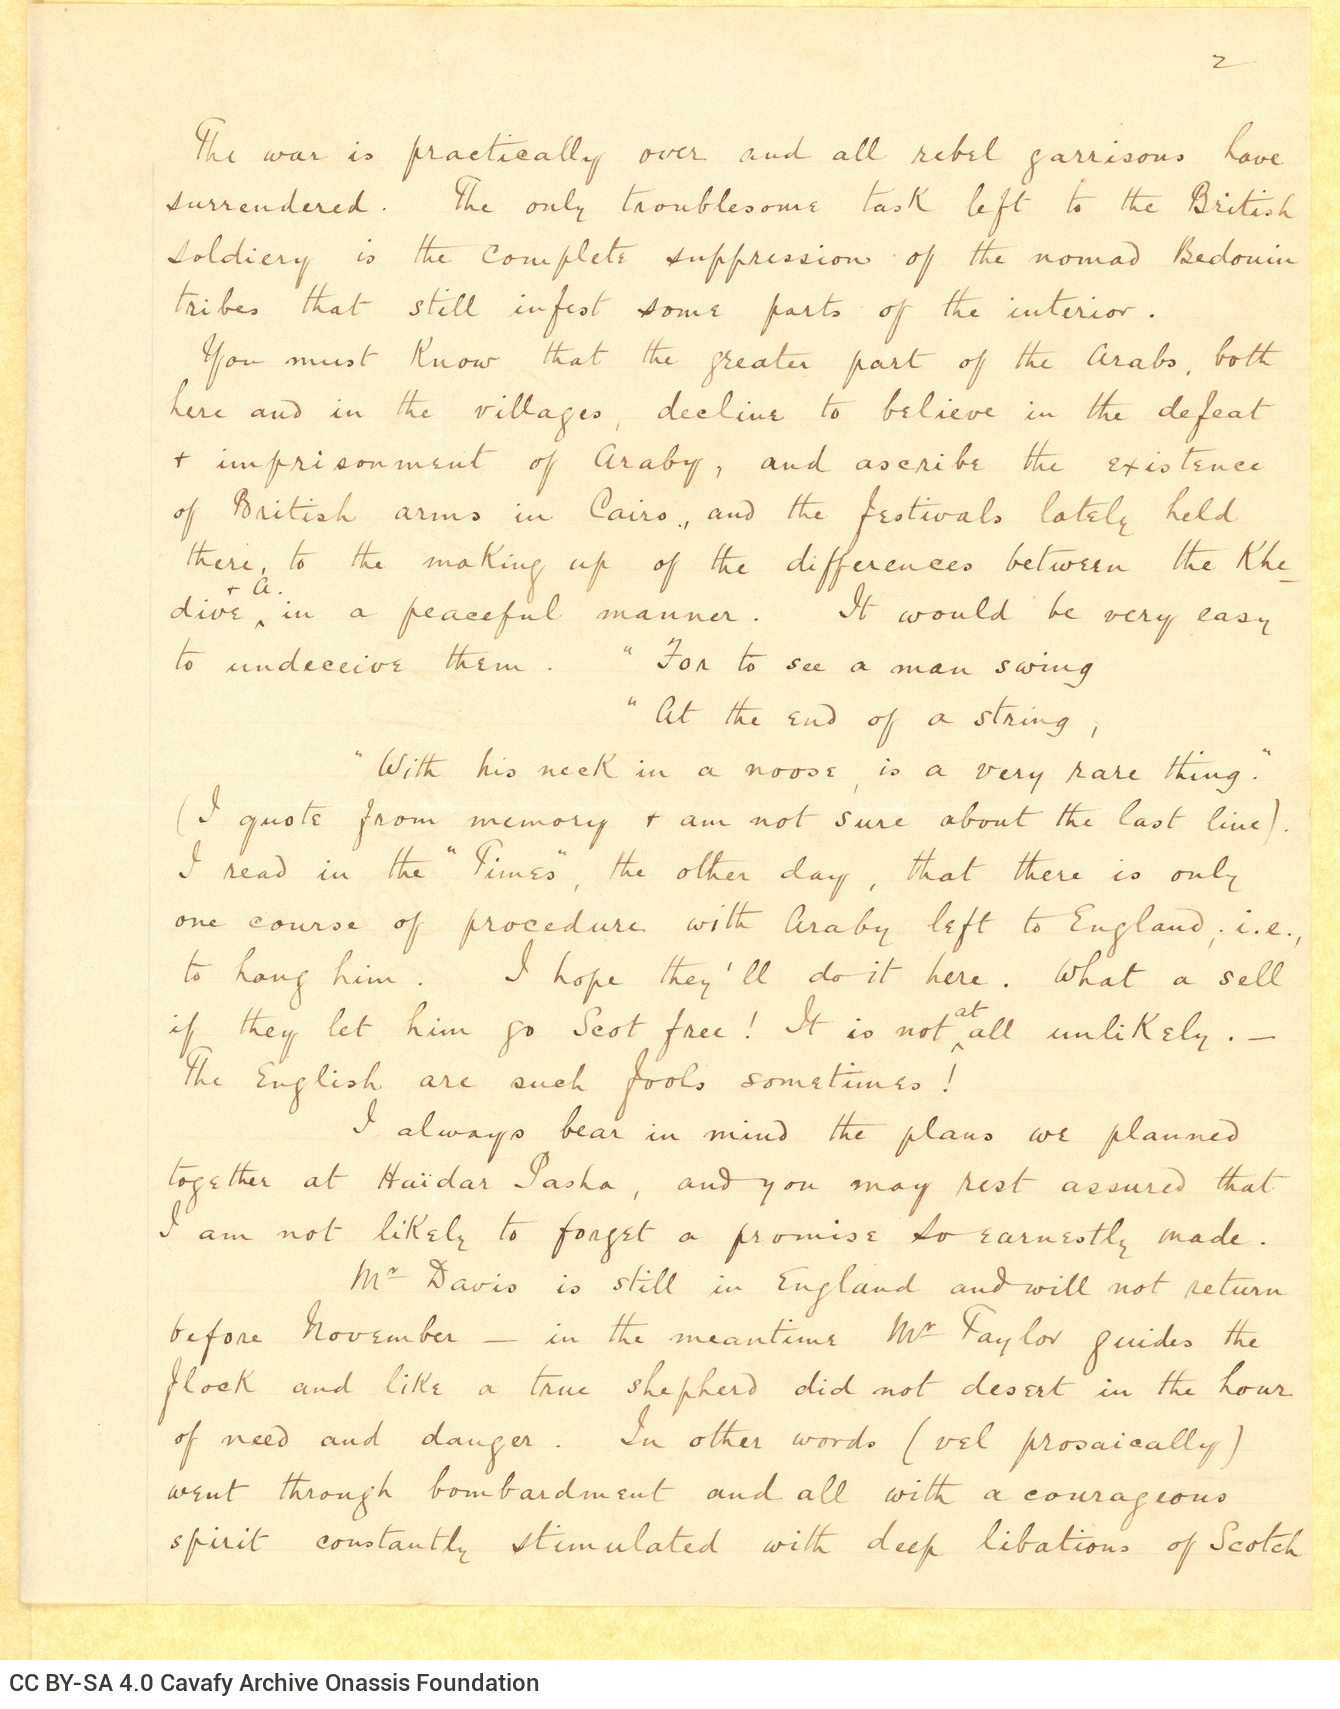 2
The war is practically over and all rebel garrisons have
surrendered. The only troublesome task left to the British
soldiery is the complete suppression of the nomad Bedouin
tribes that still infest some parts of the interior.
You must know that the greater part of the Arabs, both
here and in the villages, decline to believe in the defeat
+ imprisonment of Araby, and ascribe the existence
of British arms in Cairo, and the festivals lately held
there, to the making up of the differences between the Khe-
dive + A. in a peaceful manner. It would be very easy
to undeceive them. "For to see a man swing
"At the end of a string,
"With his neck in a noose, is a very rare thing."
(I quote from memory + am not sure about the last line).
I read in the "Times", the other day, that there is only
one course of procedure with Araby left to England, i.e.,
to hang him. I hope they'll do it here. What a sell
if they let him go Scot free! It is not at all unlikely. —
The English are such fools sometimes!
I always bear in mind the plans we planned
together at Haïdar Pasha, and you may rest assured that
I am not likely to forget a promise so earnestly made.
Mr Davis is still in England and will not return
before November — in the meantime Mr Taylor guides the
flock and like a true shepherd did not desert in the hour
of need and danger. In other words (vel prosaically)
went through bombardment and all with a courageous
spirit constantly stimulated with deep libations of Scotch
CC BY-SA 4.0 Cavafy Archive Onassis Foundation